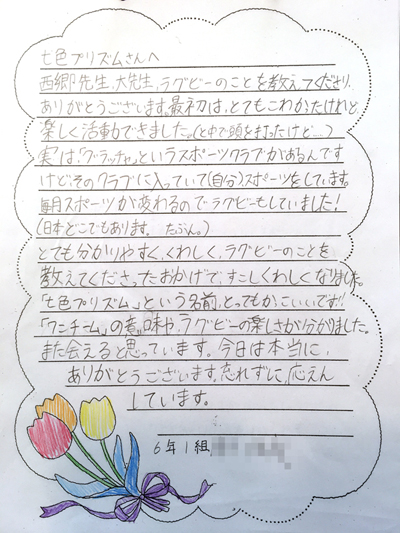 七色プリズムさんへ
西郷先生、大先生、ラグビーのことを教えてくださり、
ありがとうございます。最初は、とてもこわかたけれど
楽しく活動できました。(と中で頭を打ったけど…。)
実は、「グラッチャ」というスポーツクラブがあるんです
けど、そのクラブに入っていて(自分)スポーツをしています。
毎月スポーツが変わるのでラグビーもしていました!
(日本どこでもあります。たぶん。)
とても分かりやすく、くわしく、ラグビーのことを
教えてくださったおかげで、すこしくわしくなりました。
「七色プリズム」という名前、とってもかっこいいです!!
「ワンチーム」の意味や、ラグビーの楽しさが分かりました。
また会えると思っています。今日は本当に、
ありがとうございます。忘れずに、応えん
しています。
6年1組